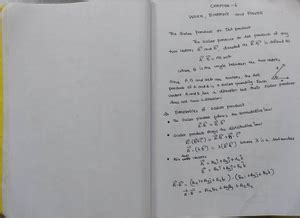 CHAPTER - 6
WORK, ENERGY AND POWER
The Scalar Product or Dot product
The Scalar product or Dot product of any
two vectors A and B, denoted by A.B is defined as
A.B = AB cosθ
where θ is the angle between the two vectors.
Since A, B and cosθ are scalars, the dot
product of A and B is a scalar quantity. Each
vector A and B has a direction but their scalar product
does not have a direction.
Properties of Scalar product
The Scalar product follows the commutative law
A.B = B.A
Scalar product obeys the distributive law
A.(B+C) = A.B + A.C
A.(λB) = λ(A.B) where λ is a
vectors
A = Axi + Ayj + Azk
B = Bxi + Byj + Bzk
A.B = (Axi + Ayj + Azk) . (Bxi + Byj + Bzk)
A.B = AxBx + AyBy + AzBz